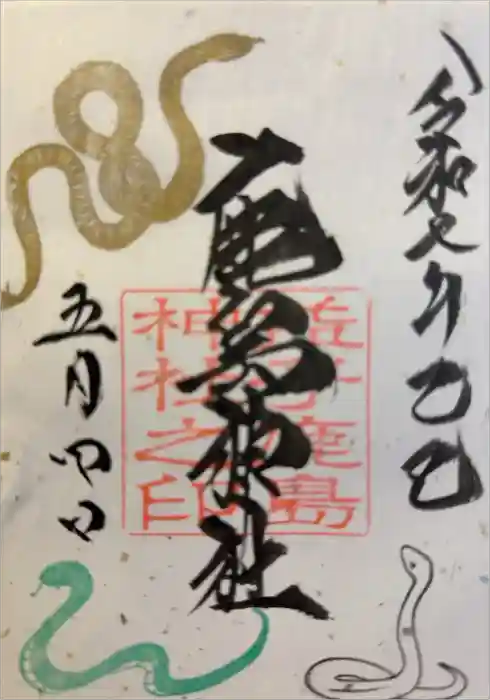 令和七年乙巳
鹿島神社
五月四日
逗子鹿島
神社之印